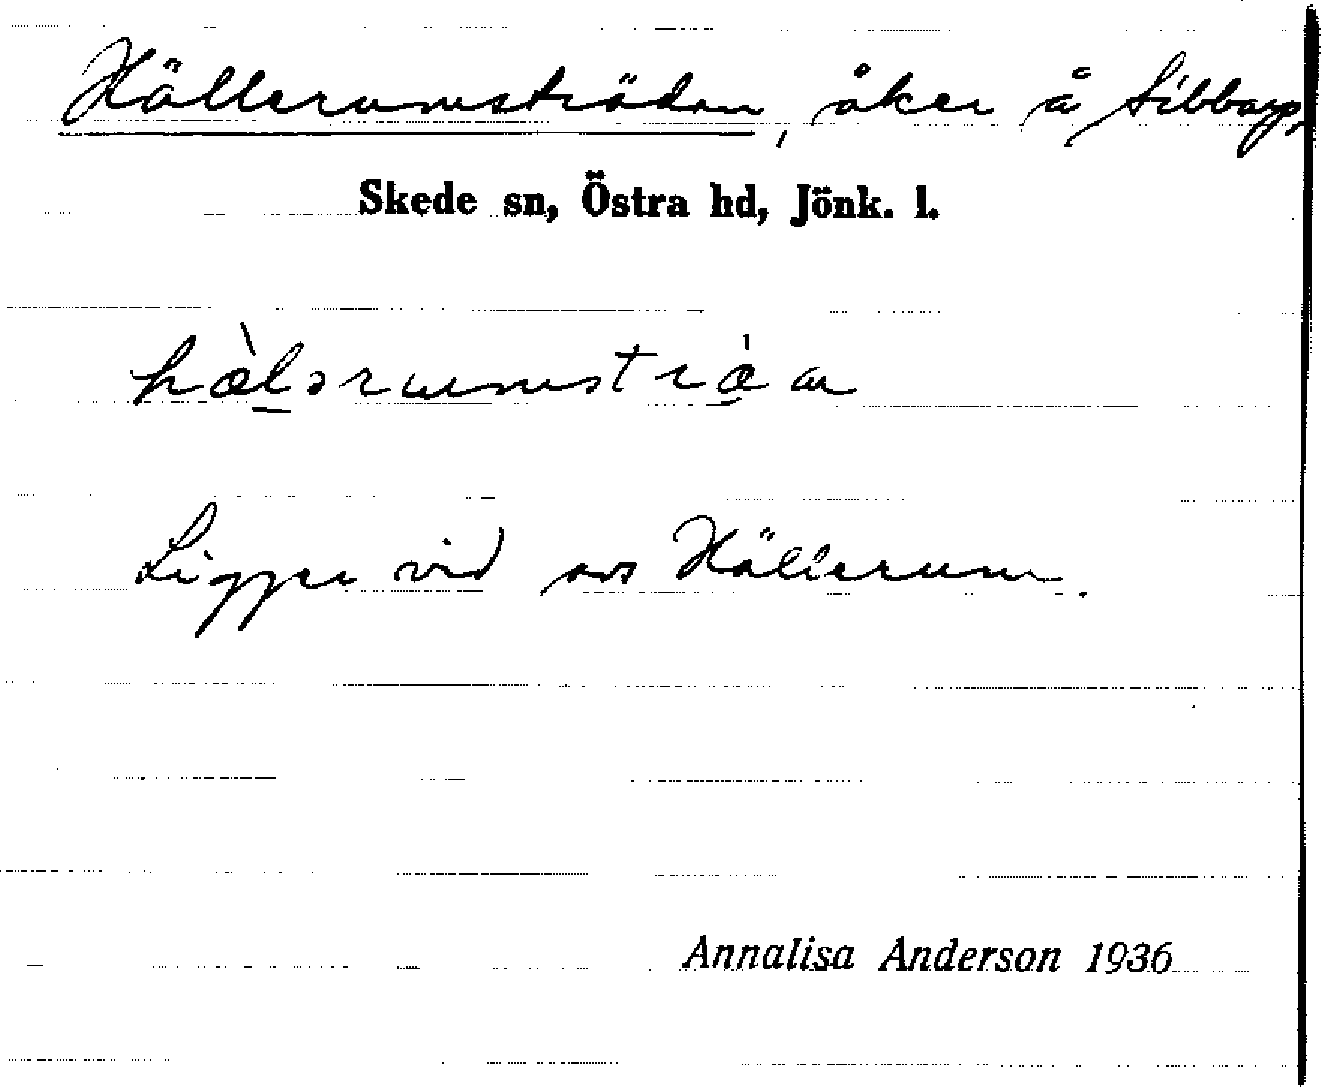 Hällerumsträdan, åker å Sibbarp,
Skede sn, Östra hd, Jönk. l.
hæ̀lərumstræ̀an
Ligger vid avs Hällerum.
Annalisa Anderson 1936